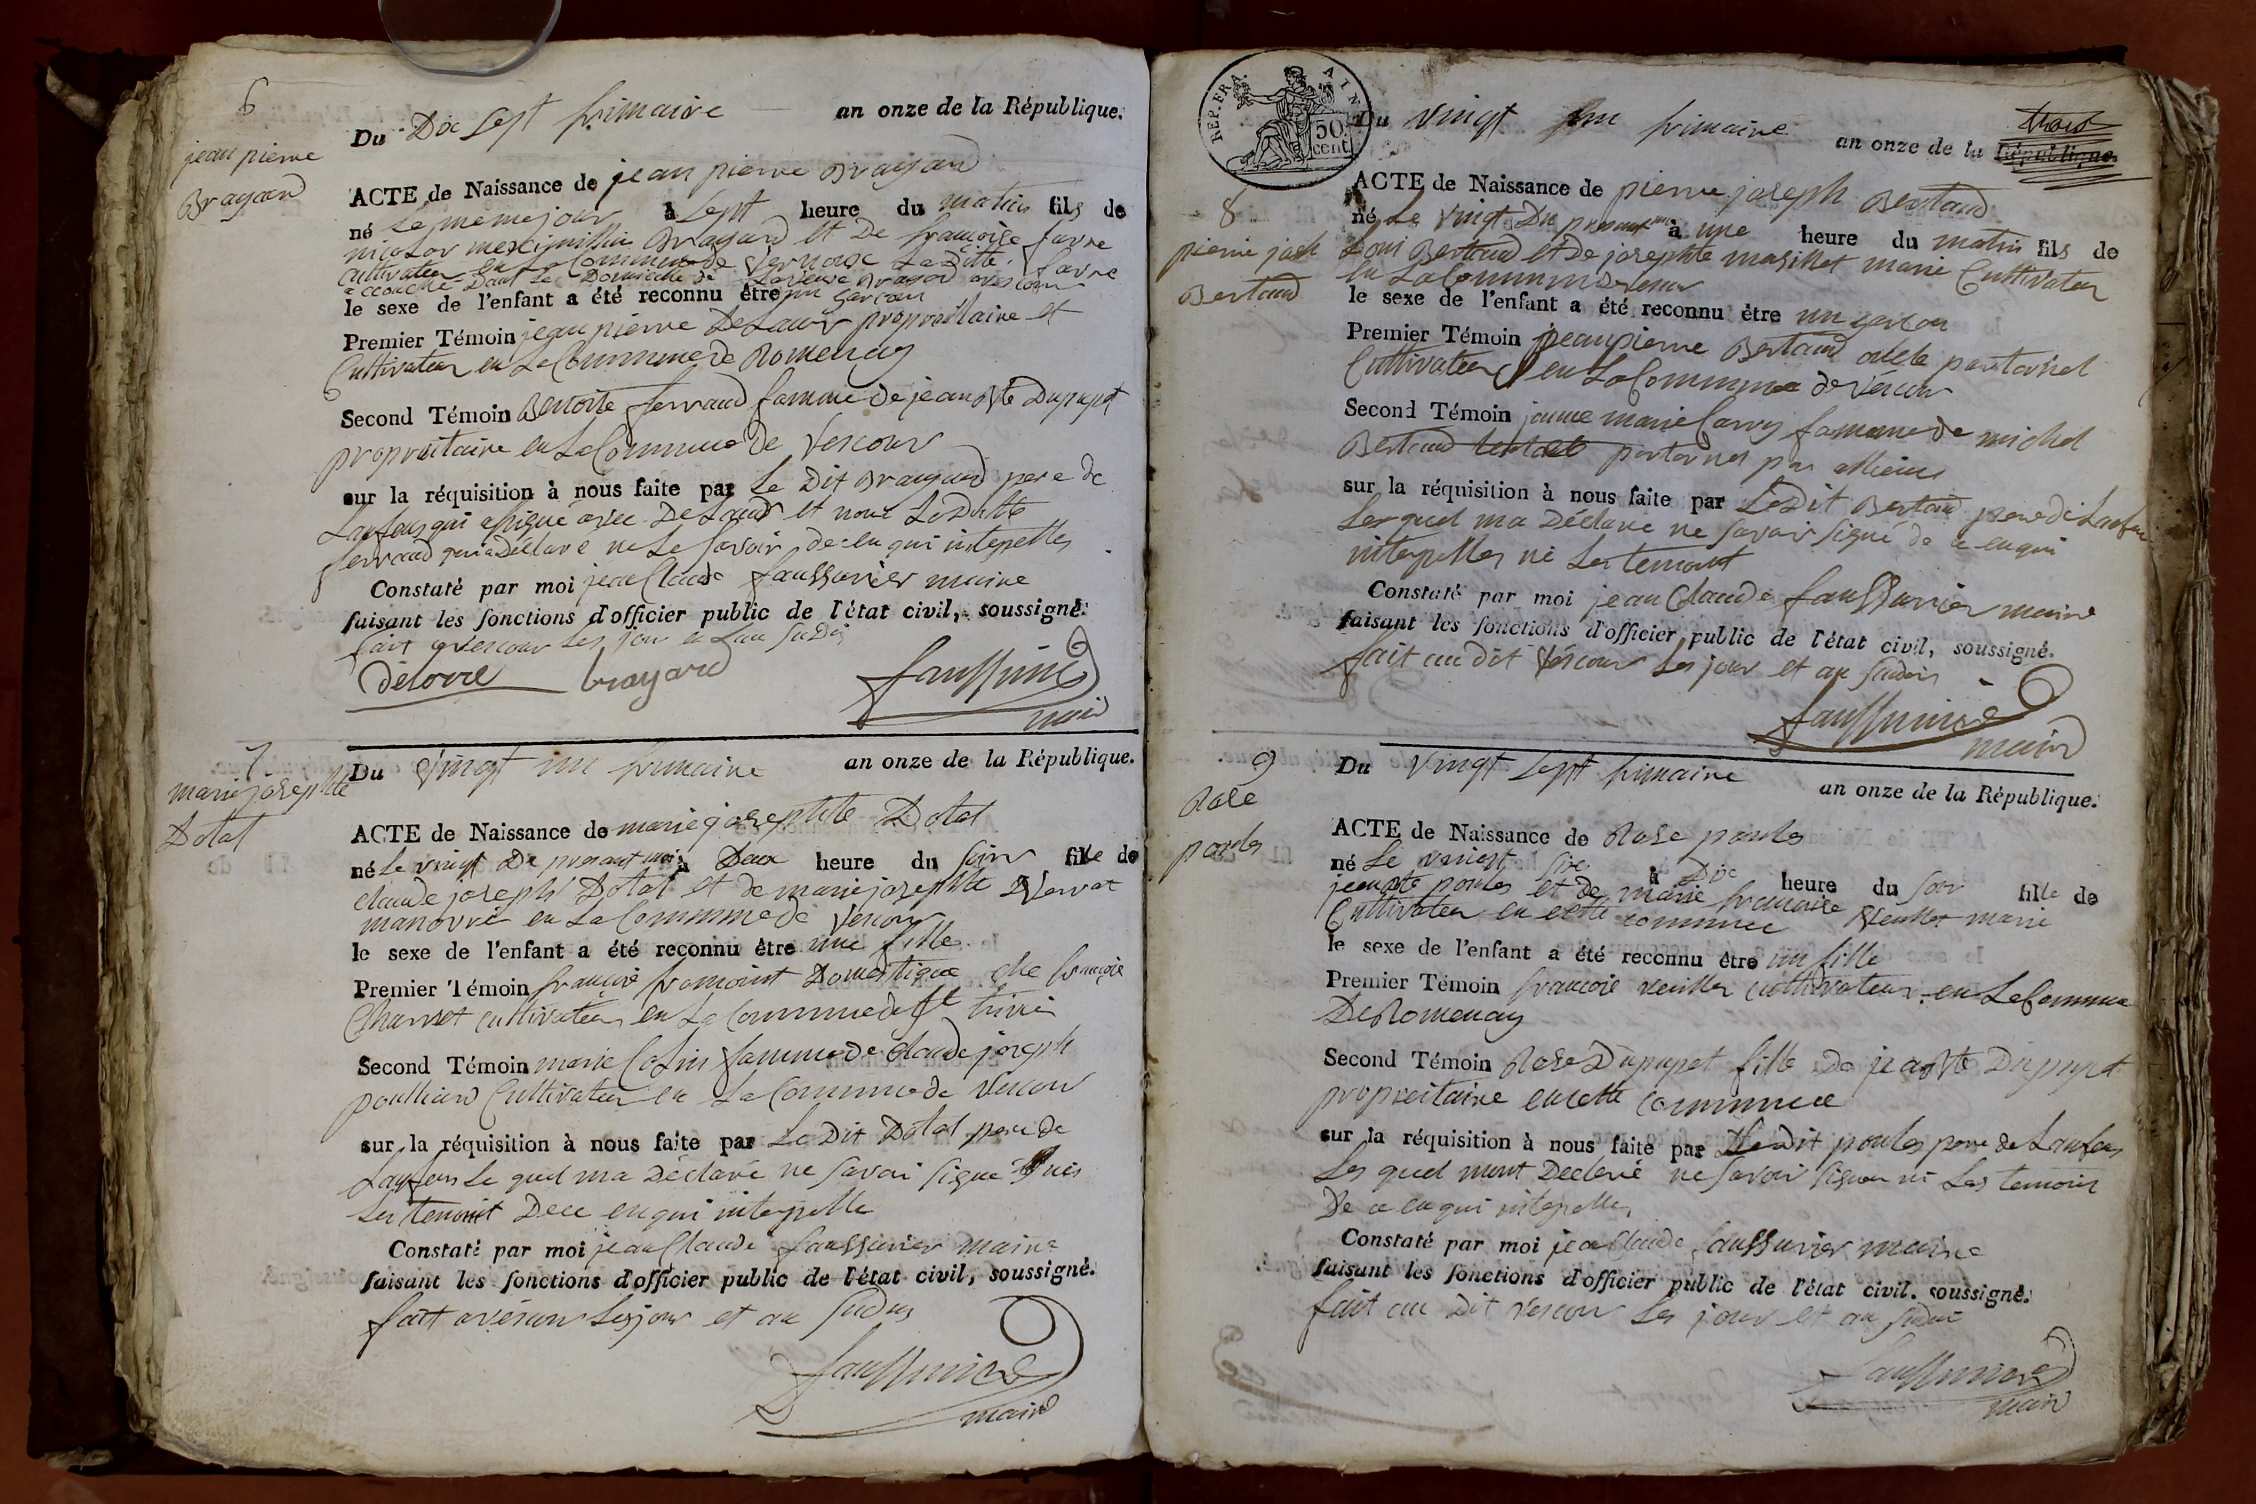 6
jean pierre
Brayard
Du Dix Sept frimaire an onze de la République.
ACTE de Naissance de jean pierre Brayard
né Le meme jour à Sept heure du matin fils de
nicolas meximillin Brayard et De françoise favre
Cultivateur en La Commune de Vernoux La ditte favre
accouché Dans Le Domicille de La veuve Brayard
le sexe de l'enfant a été reconnu être un garcon
Premier Témoin jean pierre DeLaur propriétaire et
Cultivateur en La Commune de Romenay
Second Témoin Benoite ferraud famme de jean Bte Dupupet
propreitaire en La Commune de Vescour
sur la réquisition à nous faite par Le Dit Brayard pere de
Lanfens qui asigné avec DeLaur et nont Laditte
ferraud qui a Déclaré ne Le Savoir de ce en qui intepelles
Constaté par moi jean Claude faussurier maire
faisant les fonctions d'officier public de l'état civil, soussigné.
fait a vescour Les jour et an Sudis
Delorre brayard faussurier
maire
7
marie josephte
Dotal
Du Vingt un frimaire an onze de la République.
ACTE de Naissance de marie josephte Dotal
né Le vingt Du presant moi à Deux heure du Soir fille de
claude joseph Dotal et de marie josephte Vervat
manovré en La Commune de Vescour
le sexe de l'enfant a été reconnu être une fille
Premier Témoin françoi fromoint Domestique che françoie
Charvet cultivateur en La Commune de St trivié
Second Témoin marie Colin famme de Claude joseph
poulliard Cultivateur en La Commune de Vescour
sur la réquisition à nous faite par Le Dit Dotal pere de
Lanfens Le quel ma Déclaré ne Savoi Signé nis
Les temoint Dece enqui intepelle
Constaté par moi jean Claude faussurier maire
faisant les fonctions d'officier public de l'état civil, soussigné.
fait a vescour Les jour et an Sudis
faussurier
maire
REP. FRA. 50 cent.
8
pierre josh
Bertaud
Du vingt un frimaire an onze de la République trois
ACTE de Naissance de pierre joseph Bertaud
né Le vingt Du presant moi à une heure du matin fils de
Loui Bertaud et de josephte masillet marié Cultivateur
en La Commun De vescour
le sexe de l'enfant a été reconnu être un garcon
Premier Témoin jean pierre Bertaud oncle paternel
Cultivateur en La Commune de Vescour
Second Témoin jeanne marie Carry famme de michel
Bertaud paternel par allience
sur la réquisition à nous faite par Ledit Bertaud pere de Lanfen
Lesquel ma Déclaré ne Savoir Signé de ce enqui
intepelles ni Les temoint
Constaté par moi jean Claude faussurier maire
faisant les fonctions d'officier public de l'état civil, soussigné.
fait au dit Vescour Les jour et an Sudis
faussurier
maire
9
Rose
poules
Du Vingt Sept frimaire an onze de la République.
ACTE de Naissance de Rose poules
né Le vingt Six à Dix heure du soir fille de
jean bte poules et de marie francoise Veuillet marié
Cultivateur en cette commune
le sexe de l'enfant a été reconnu être un fille
Premier Témoin francoie veuillet cultivateur en La Commune
De Romenay
Second Témoin Rose Dupupet fille de jean Bte Dupupet
propreitaire en cette Commune
sur la réquisition à nous faite par Ledit poules pere de Lanfens
Les quel mont Declaré ne Savoir Signer ni Les temoins
De ce enqui intepelles
Constaté par moi jean Claude faussurier maire
faisant les fonctions d'officier public de l'état civil. soussigné.
fait au Dit Vescour Les jour et an Sudis
faussurier
maire